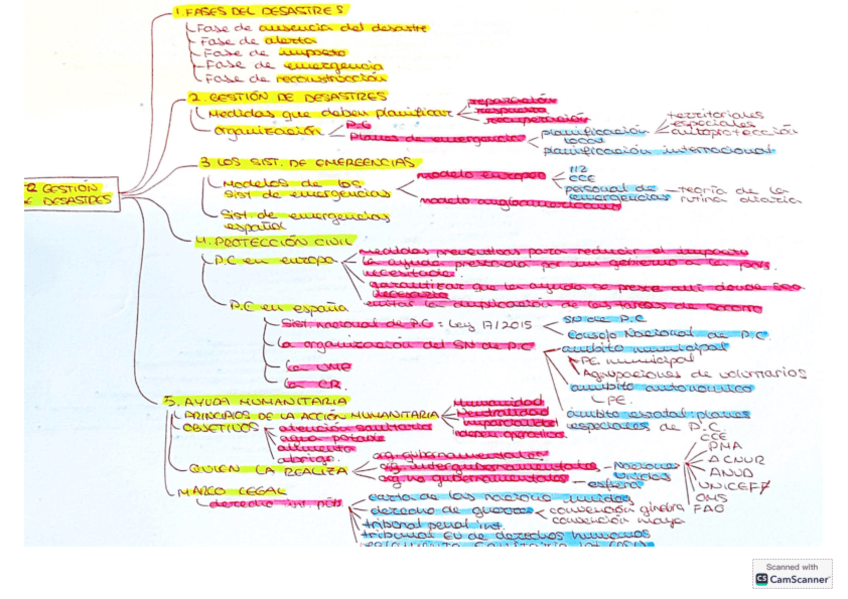 1. FASES DEL DESASTRES
Fase de ausencia del desastre
Fase de alerta
Fase de impacto
Fase de emergencia
Fase de reconstrucción
2. GESTIÓN DE DESASTRES
Medidas que deben planificar
reparación
respuesta
recuperación
organización
P.C
Planes de emergencia
planificación local
territoriales
especiales
autoprotección
planificación internacional
3. LOS SIST. DE EMERGENCIAS
Modelos de los sist. de emergencias
modelo europeo
112
CCE
personal de emergencias
teoría de la rutina diaria
modelo angloamericano
Sist. de emergencias español
T2 GESTIÓN
DE DESASTRES
4. PROTECCIÓN CIVIL
P.C en europa
medidas preventivas para reducir el impacto
la ayuda prestada por un gobierno a la pob.
necesitada.
garantizar que la ayuda se preste allí donde sea
necesaria
evitar la duplicación de las tareas de socorro
P.C en españa
Sist. nacional de P.C: Ley 17/2015
SN de P.C
Consejo Nacional de P.C.
La organización del SN de P.C
ámbito municipal
P.E. municipal
Agrupaciones de voluntarios
ámbito autonómico
P.E.
ámbito estatal: planes
especiales de P.C.
La UME
La CR.
5. AYUDA HUMANITARIA
PRINCIPIOS DE LA ACCIÓN HUMANITARIA
Humanidad
Neutralidad
imparcialidad
indep. operativa
OBJETIVOS
atención sanitaria
agua potable
alimento
abrigo.
QUIEN LA REALIZA
org. gubernamentales
org. intergubernamentales
Naciones Unidas
CCE
PMA
ACNUR
UNICEF
OMS
FAO
org. no gubernamentales
esfera
MARCO LEGAL
derecho int. púb
carta de las naciones unidas
derecho de guerra
convención ginebra
convención haya
tribunal penal int.
tribunal EU de derechos humanos
Scanned with
CS CamScanner